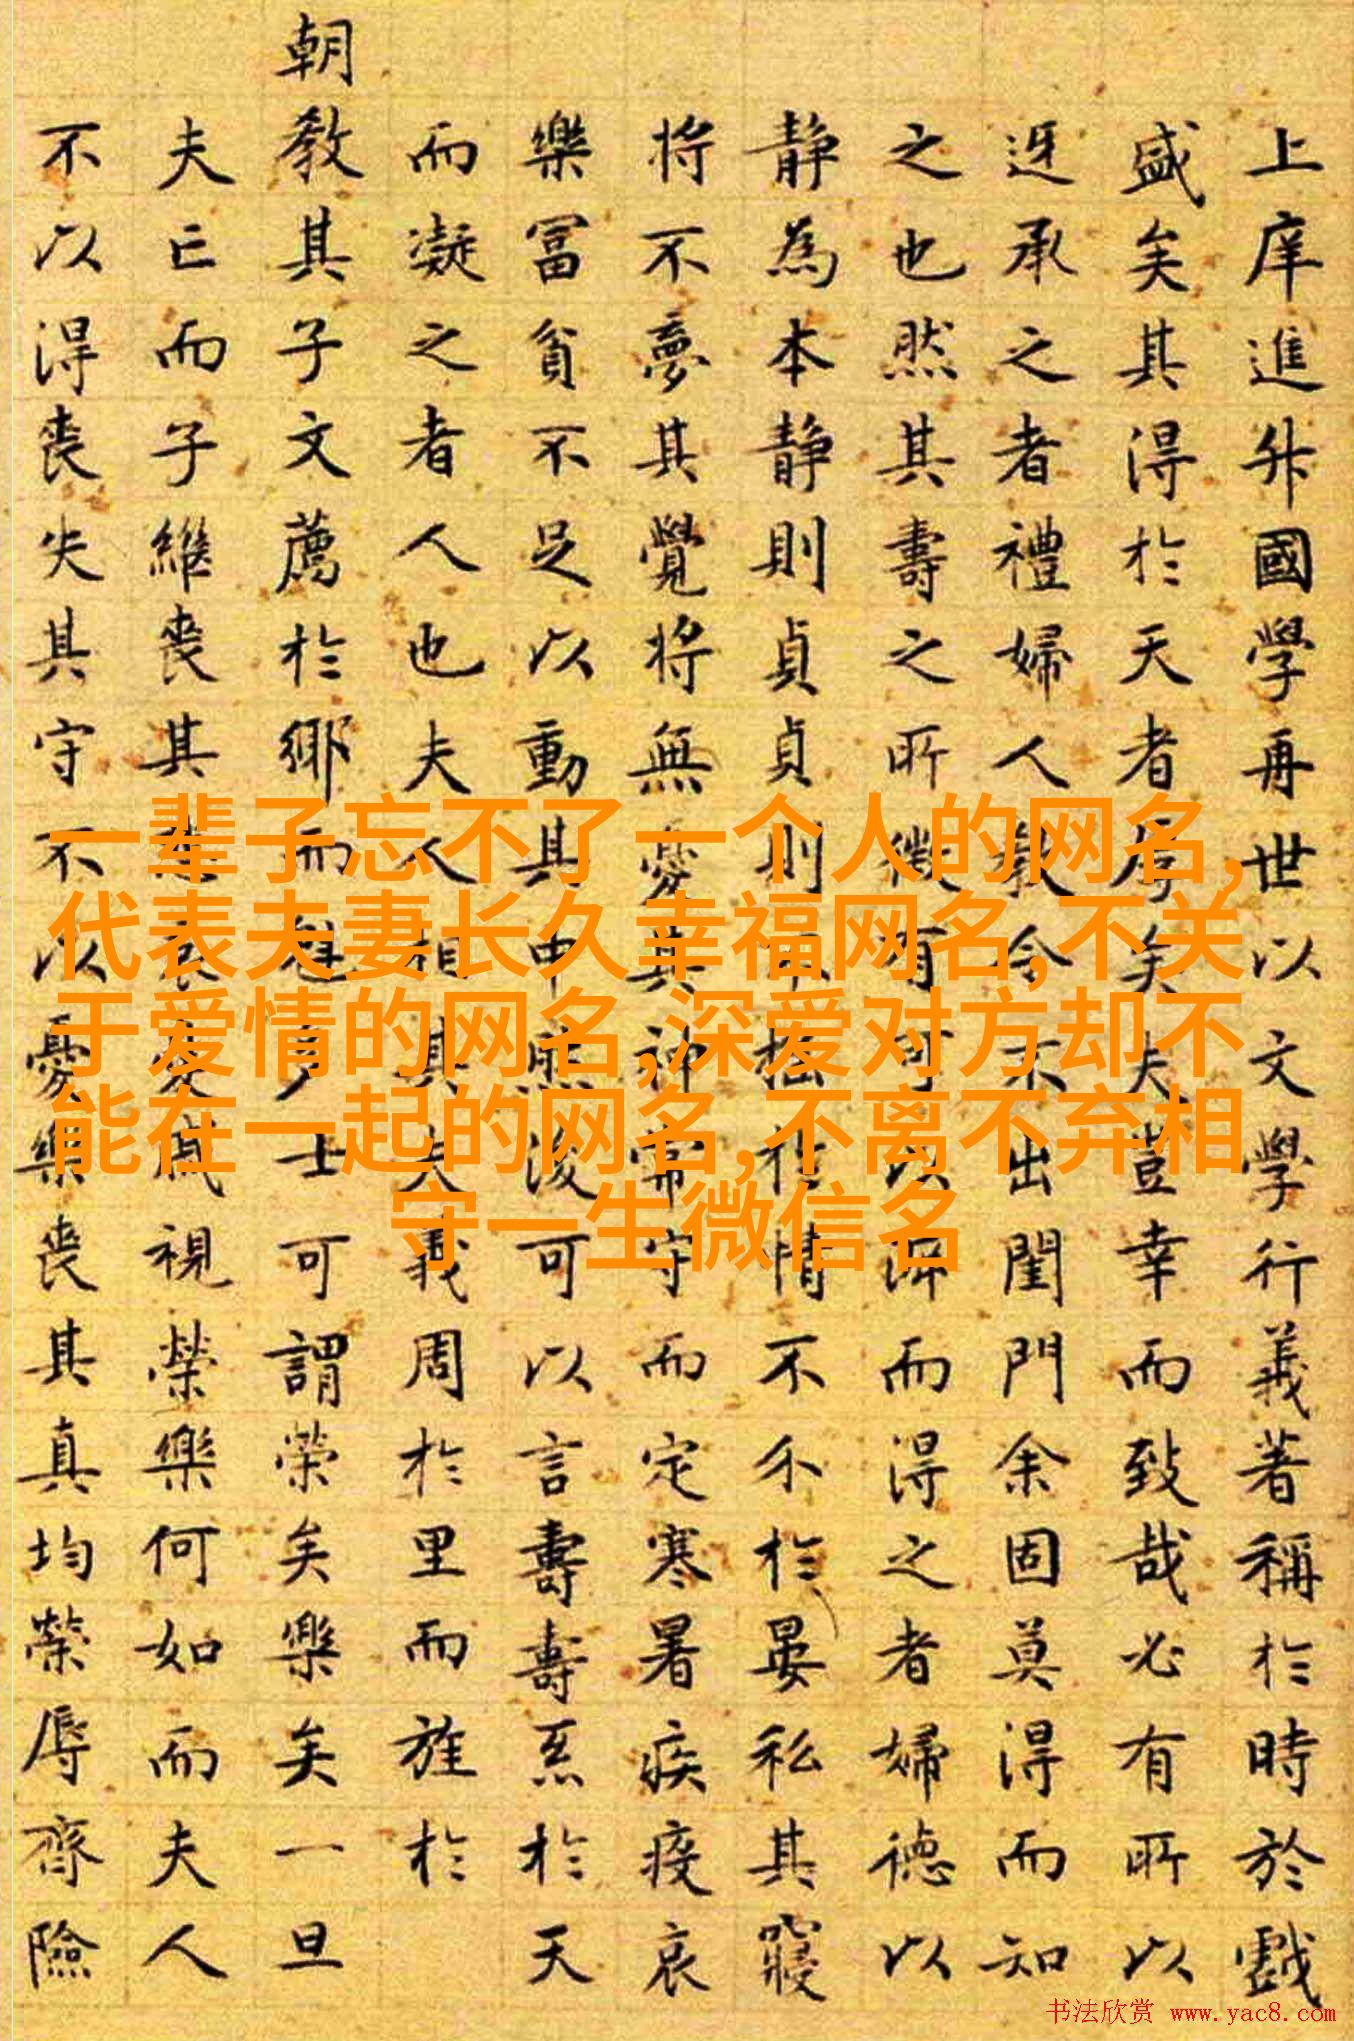 上庠進升國學再世以文學行義著稱於時於戲
盛矣其得於天者厚矣夫豈幸而致哉必有所以
迓承之者禮婦人教令不出閨門余固莫得而知
之也然其壽之所徵有可以而得之者婦德以
静為本静則貞貞則不搖於情不尒於晏私其寢
将不夢其覺将無憂其神常守而定寒暑疾疫哀
樂冨貧不足以動其中然後可以言壽壽於天
而凝之者人也夫人相其夫義周於里而旌於
朝教其子文薦於鄉而魁多士可謂榮矣樂矣一旦
夫亡而子繼喪其悲哀憂戚視榮樂何如而夫人
不以得喪失其守不以憂樂喪其真均榮辱齊險
一辈子忘不了一个人的网名,
代表夫妻长久幸福网名,不关
于爱情的网名,深爱对方却不
能在一起的网名,不离不弃相
守一生微信名
书法欣赏 www.yac8.com